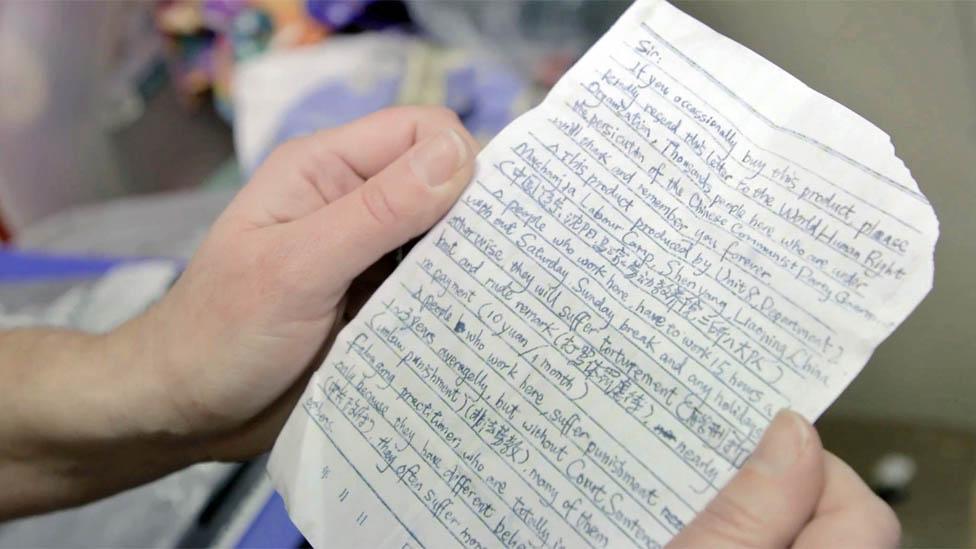 Sir:
If you occassionally buy this product, please
kindly resend this letter to the World Human Right
Organization, Thousands people here who are under
the persicution of the Chinese Communist Party Government
will thank and remember you forever
△ This product produced by Unit 8, Department 2,
Masanjia Labour Camp, Shenyang, Liaoning, China
(中国,辽宁,沈阳,马三家劳动教养院二所八大队)
△ people who work here, have to work 15 hours a
with out Saturday Sunday break and any holidays
other wise they will suffer torturement (酷刑折磨),
beat and rude remark (打骂体罚虐待), nearly
no payment (10 yuan/1 month)
△ people who work here, suffer punishment
1~3 years averagelly, but without Court Sentence
(unlaw punishment) (非法劳教), many of them
Falun gong practitioner, who are totally
only because they have different
they often suffer more
others.
" " "